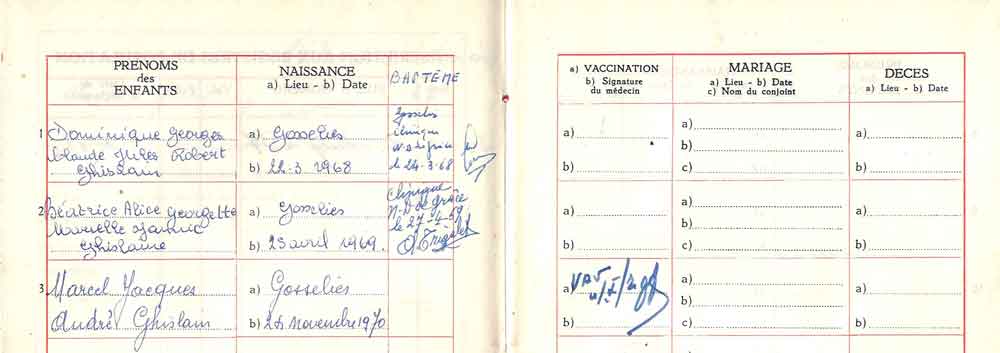 PRENOMS
des
ENFANTS
NAISSANCE
a) Lieu - b) Date
BAPTÊME
1
Dominique Georges
Claude Jules Robert
Ghislain
a) Gosselies
b) 22-3 1968
Gosselies
clinique
N-D de grâce
le 24-3-68
2
Béatrice Alice Georgette
Ghislaine
a) Gosselies
b) 23 avril 1969.
Clinique
N-D de grâce
le 27-4-69
3
Marcel Jacques
André Ghislain
a) Gosselies
b) 26 novembre 1970
a) VACCINATION
b) Signature
du médecin
MARIAGE
a) Lieu - b) Date
c) Nom du conjoint
DECES
a) Lieu - b) Date
a)
b)
a)
b)
c)
a)
b)
a)
b)
a)
b)
c)
a)
b)
a)
b)
a)
b)
c)
a)
b)